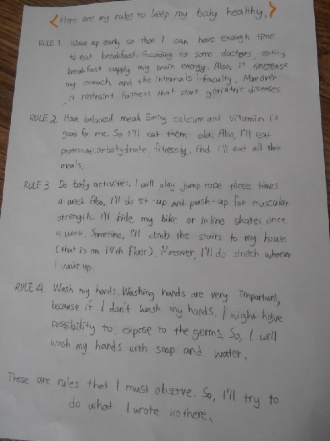 <Here are my rules to keep my body healthy.>
RULE 1. Wake up early so that I can have enough time
to eat breakfast. According to some doctors, eating
breakfast supply my main energy. Also, it increase
my stomach and the internals faculty. Moreover
, it restraint fatness that start geriatric diseases.
RULE 2. Have enlured meal. Enlug calcum and vitamin is
good for me. So I'll eat them alot. Also, I'll eat
protein, carbohydrate, fat evenly. And I'll eat all the
meals.
RULE 3 Do body activities. I will play jump rope three times
a week. Also, I'll do sit-up and push-up for muscular
strength. I'll ride my bike or inline skates once
a week. Sometime, I'll climb the stairs to my house
(that is on 14th floor). Moreover, I'll do stretch whenever
I wake up.
RULE 4 Wash my hands. Washing hands are very important,
because if I don't wash my hands, I might have
possibility to expose to the germs. So, I will
wash my hands with soap and water.
These are rules that I must observe. So, I'll try to
do what I wrote on there.